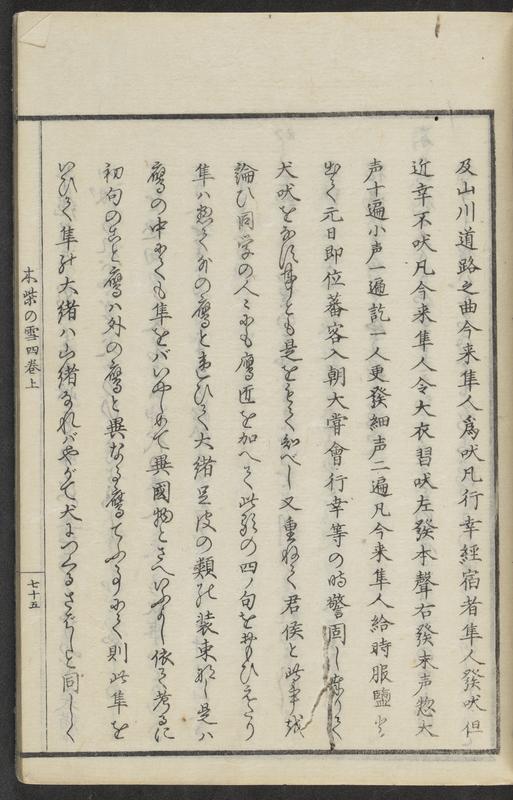 及山川道路之曲今来隼人爲吠凡行幸經宿者隼人發吠但
近幸不吠凡今来隼人令大衣習吠左發本聲右發末声惣大
声十遍小声一遍訖一人更發細声二遍凡今来隼人給時服鹽
元日即位蕃客入朝大嘗會行幸等の時警固し
犬吠を是を知べし又重ねて君侯と此事
論ひ同学の人々にも鷹匠を加へて此の四ノ句を
隼ハ惣て外の鷹と違ひて大緒足皮の類の装束是ハ
鷹の中にも隼をバいやしめて異國物とさへいふ依て考るに
初句のこと鷹ハ外の鷹と異なる鷹て則此隼を
いひて隼の大緒ハ山緒なれバやがて犬につくるさまと同しく
木柴の雪四巻上
七十五